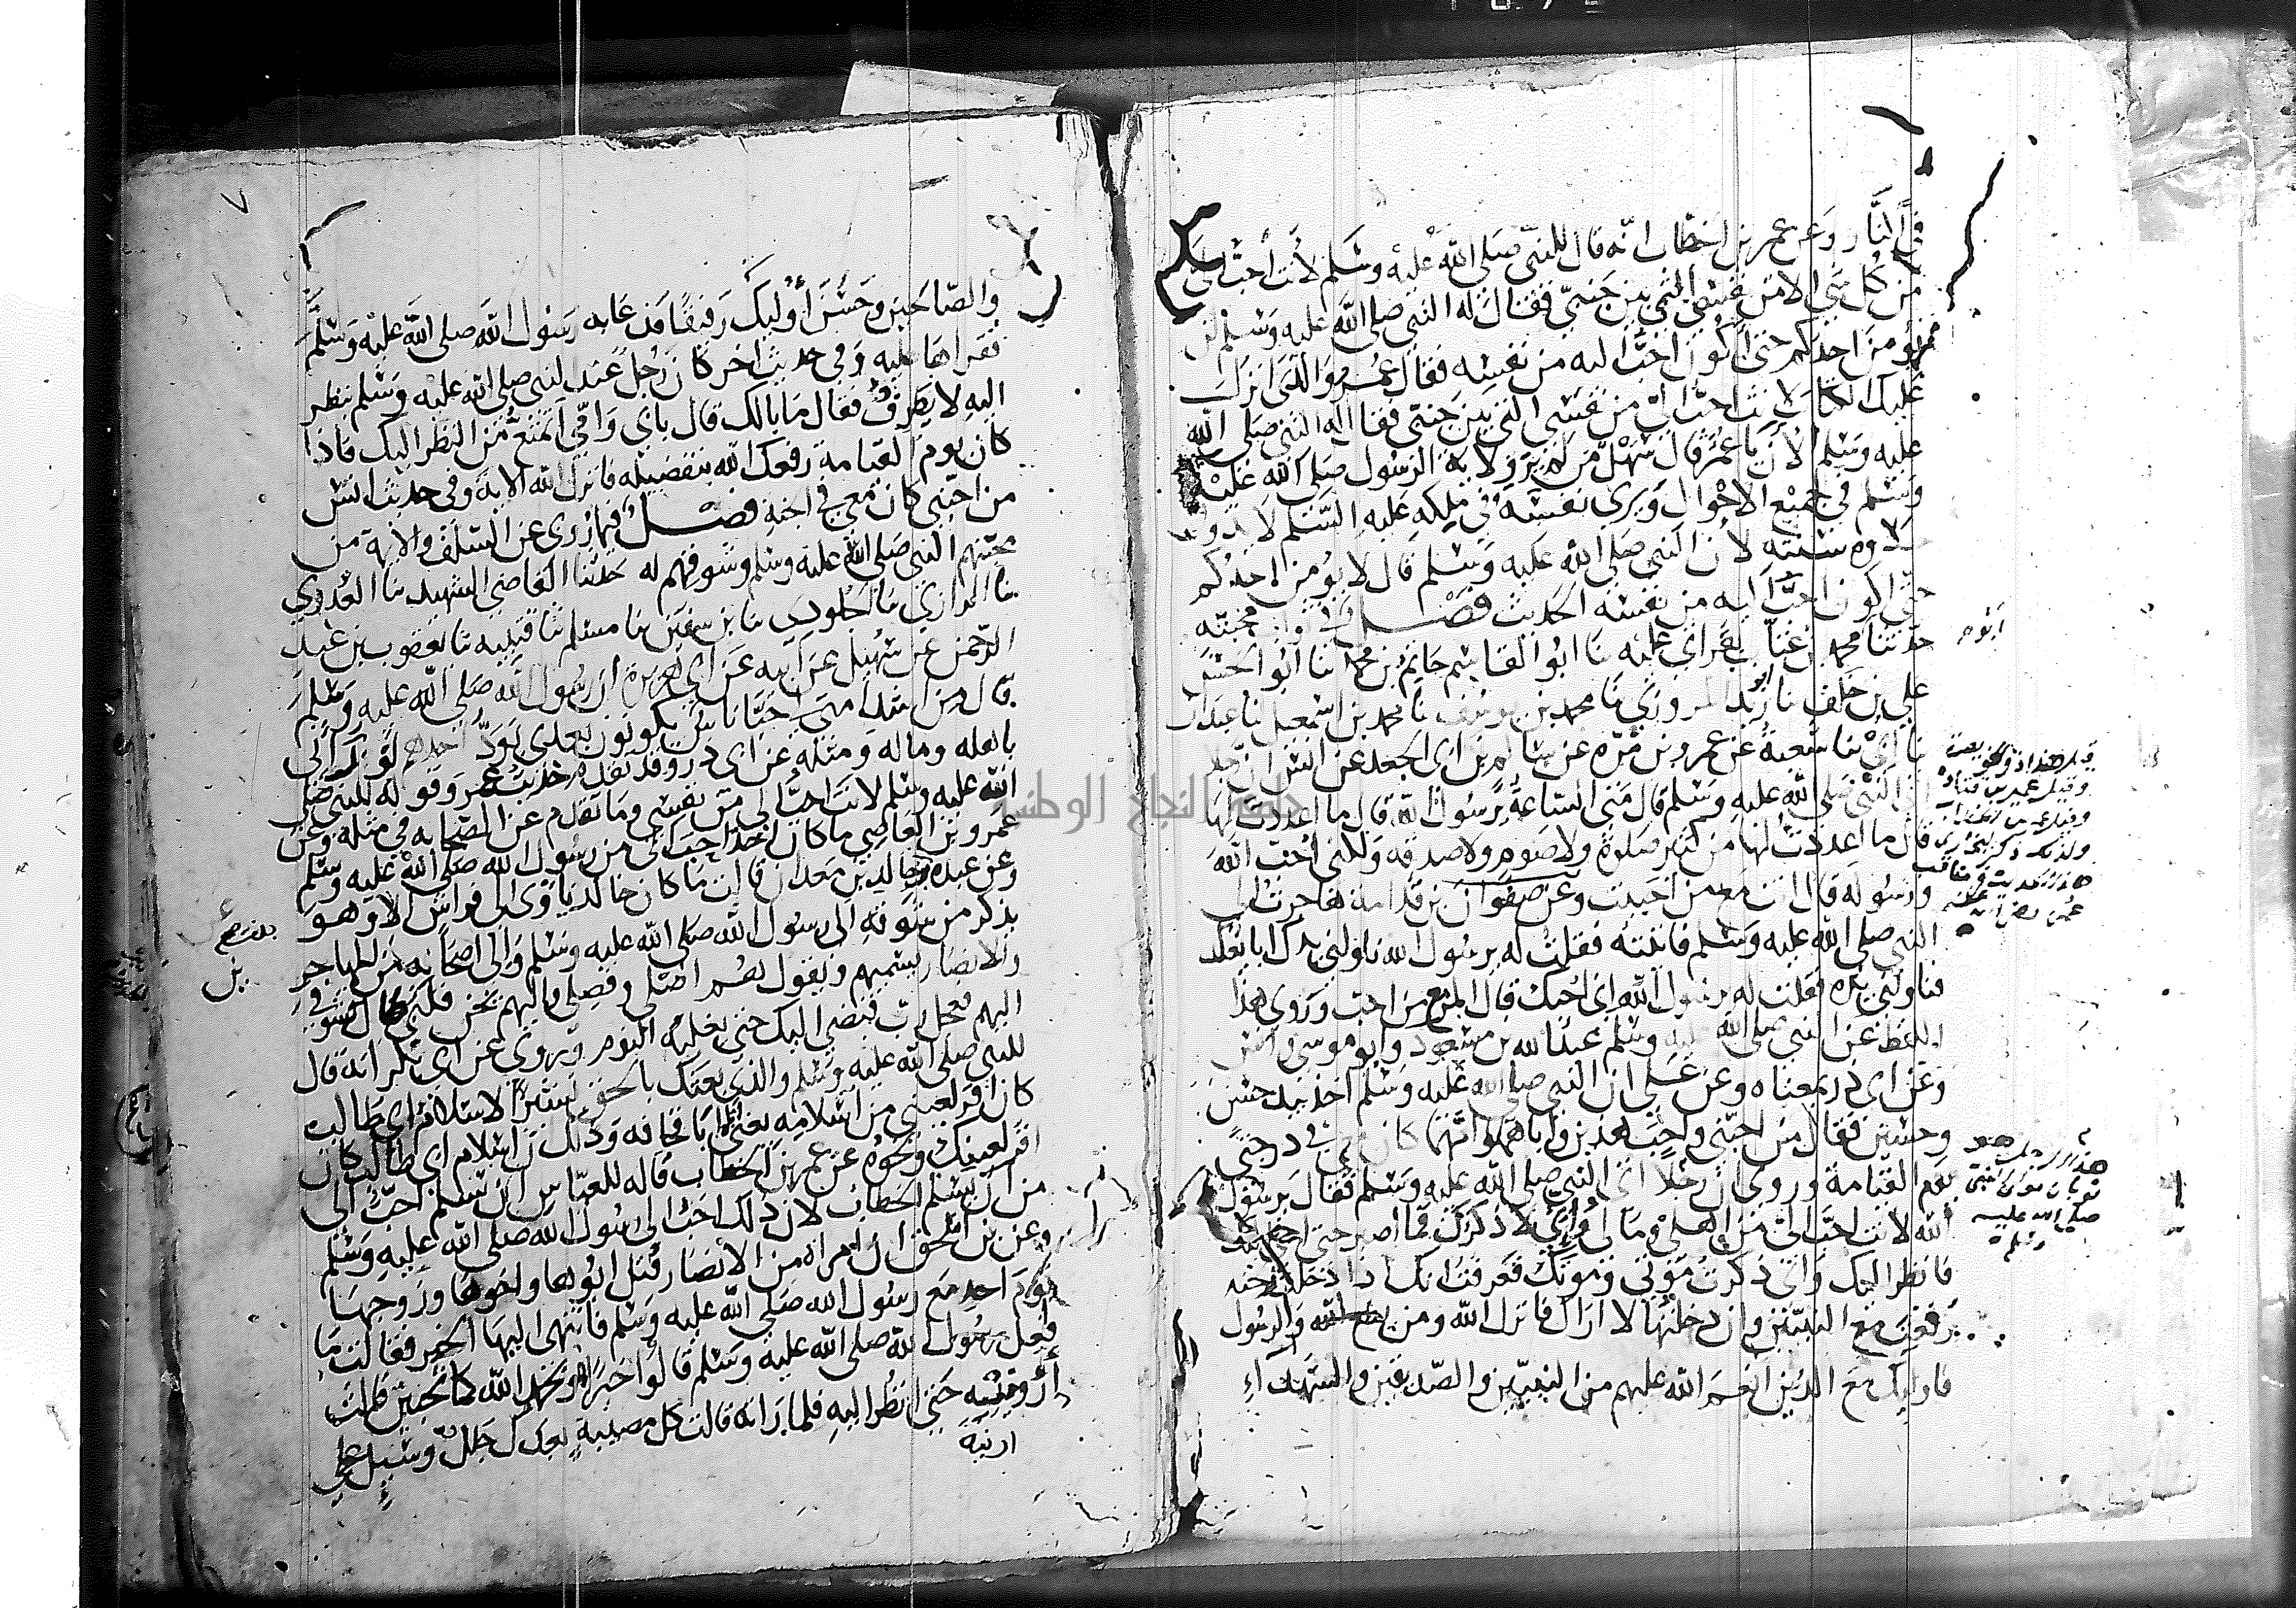 في النار وعن عمر بن الخطاب انه قال للنبي صلى الله عليه وسلم لأنت أحب الي
من كل شي الا من نفسي التي بين جنبي فقال له النبي صلى الله عليه وسلم لن
يؤمن احدكم حتى أكون احب اليه من نفسه فقال عمر والذي انزل
عليك الكتاب لانت احب الي من نفسي التي بين جنبي فقال له النبي صلى الله
عليه وسلم الان يا عمر قال سهل من لم ير ولاية الرسول صلى الله عليه
وسلم في جميع الاحوال ويرى نفسه في ملكه عليه السلم لا يذوق
حلاوة سنته لان النبي صلى الله عليه وسلم قال لا يؤمن احدكم
حتى اكون احب اليه من نفسه الحديث فصل في ثواب محبته
حدثنا محمد بن عتاب بقراتي عليه نا ابو القاسم حاتم بن محمد نا أبو الحسن
علي بن خلف نا ابو زيد المروزي نا محمد بن يوسف نا محمد بن اسمعيل نا عبدان
نا أبي نا شعبة عن عمرو بن مرة عن سالم بن ابي الجعد عن انس ان رجلا
اتى النبي صلى الله عليه وسلم قال متى الساعة يرسول الله قال ما اعددت لها
قال ما اعددت لها من كثير صلوة ولا صوم ولا صدقة ولكني أحب الله
ورسوله قال انت مع من احببت وعن صفوان بن قدامة هاجرت الى
النبي صلى الله عليه وسلم فاتيته فقلت له يرسول الله ناولني يدك ابايعك
فناولني يده فقلت له يرسول الله اني أحبك قال المرء مع من احب وروى هذا
اللفظ عن النبي صلى الله عليه وسلم عبد الله بن مسعود وابو موسى وانس
وعن ابي ذر بمعناه وعن علي ان النبي صلى الله عليه وسلم اخذ بيد حسن
وحسين فقال من احبني واحب هذين واباهما وامهما كان معي في درجتي
يوم القيامة وروي ان رجلا اتى النبي صلى الله عليه وسلم فقال يرسول
الله لانت احب الي من اهلي ومالي واني لا ذكرك فما اصبر حتى اجي
فانظر اليك واني ذكرت موتي وموتك فعرفت انك اذا دخلت الجنة
رفعت مع النبيين وان دخلتها لا اراك فانزل الله ومن يطع الله والرسول
فاوليك مع الذين انعم الله عليهم من النبيين والصديقين والشهداء
ابو
قيل هذا ذو الخويصة
وقيل عمير بن قتادة
ولذلك ذكر البخاري
هذا الحديث في مناقب
عمر رضي الله عنه
هذا الرجل هو
ثوبان مولى النبي
صلى الله عليه
وسلم
٧
والصالحين وحسن أوليك رفيقا فدعا به رسول الله صلى الله عليه وسلم
فقراها عليه وفي حديث اخر كان رجل عند النبي صلى الله عليه وسلم ينظر
اليه لا يطرف فقال ما بالك قال بأبي وأمي اتمتع من النظر اليك فاذا
كان يوم القيامة رفعك الله بتفضيله فانزل الله الاية وفي حديث انس
من احبني كان معي في الجنة فصل فيما روي عن السلف والايمة من
محبتهم النبي صلى الله عليه وسلم وشوقهم له حدثنا القاضي الشهيد نا العذري
نا الرازي نا الجلودي نا بن سفين نا مسلم نا قتيبة نا يعقوب بن عبد
الرحمن عن سهيل عن أبيه عن ابي هريرة ان رسول الله صلى الله عليه وسلم
قال من اشد امتي لي حبا ناس يكونون بعدي يود أحدهم لو راني
باهله وماله ومثله عن ابي ذر وقد تقدم حديث عمر وقوله للنبي صلى
الله عليه وسلم لانت احب الي من نفسي وما تقدم عن الصحابة في مثله وعن
عمرو بن العاصي ما كان احد احب الي من رسول الله صلى الله عليه وسلم
وعن عبدة بنت خالد بن معدان قالت ما كان خالد يأوى الى فراش الا وهو
يذكر من شوقه الى رسول الله صلى الله عليه وسلم والى اصحابه من المهاجر
والانصار يسميهم ويقول هم اصلي وفصلي واليهم يحن قلبي طال شوقي
اليهم فعجل رب قبضي اليك حتى يغلبه النوم وروي عن ابي بكر انه قال
للنبي صلى الله عليه وسلم والذي بعثك بالحق لاسلام ابي طالب
كان اقر لعيني من اسلامه يعني اباه ابا قحافة وذلك ان اسلام ابي طالب كان
اقر لعينك ونحوه عن عمر بن الخطاب قاله للعباس ان تسلم احب الي
من ان يسلم الخطاب لان ذلك احب الى رسول الله صلى الله عليه وسلم
وعن بن اسحق ان امراة من الانصار قتل ابوها واخوها وزوجها
يوم احد مع رسول الله صلى الله عليه وسلم فانتهى اليها الخبر فقالت ما
فعل رسول الله صلى الله عليه وسلم قالوا خيرا هو بحمد الله كما تحبين قالت
أرونيه حتى انظر اليه فلما رأته قالت كل مصيبة بعدك جلل وسيل علي
ارنيه
بن
جامعة النجاح الوطنية